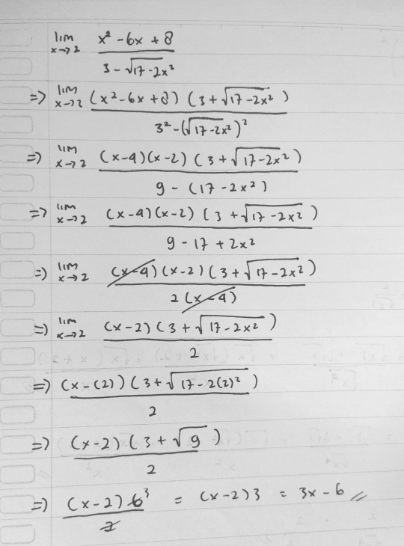 lim x→2 (x² - 6x + 8) / (3 - √17-2x²)
=> lim x→2 (x² - 6x + 8) (3 + √17-2x²) / (3² - (√17-2x²)²)
=> lim x→2 (x-4)(x-2) (3 + √17-2x²) / (9 - (17 - 2x²))
=> lim x→2 (x-4)(x-2) (3 + √17-2x²) / (9 - 17 + 2x²)
=> lim x→2 (x-4)(x-2) (3 + √17-2x²) / 2(x-4)
=> lim x→2 (x-2) (3 + √17-2x²) / 2
=> (x-(2)) (3 + √17-2(2)²) / 2
=> (x-2) (3 + √9) / 2
=> (x-2) 6 3 / 2 = (x-2) 3 = 3x - 6 //